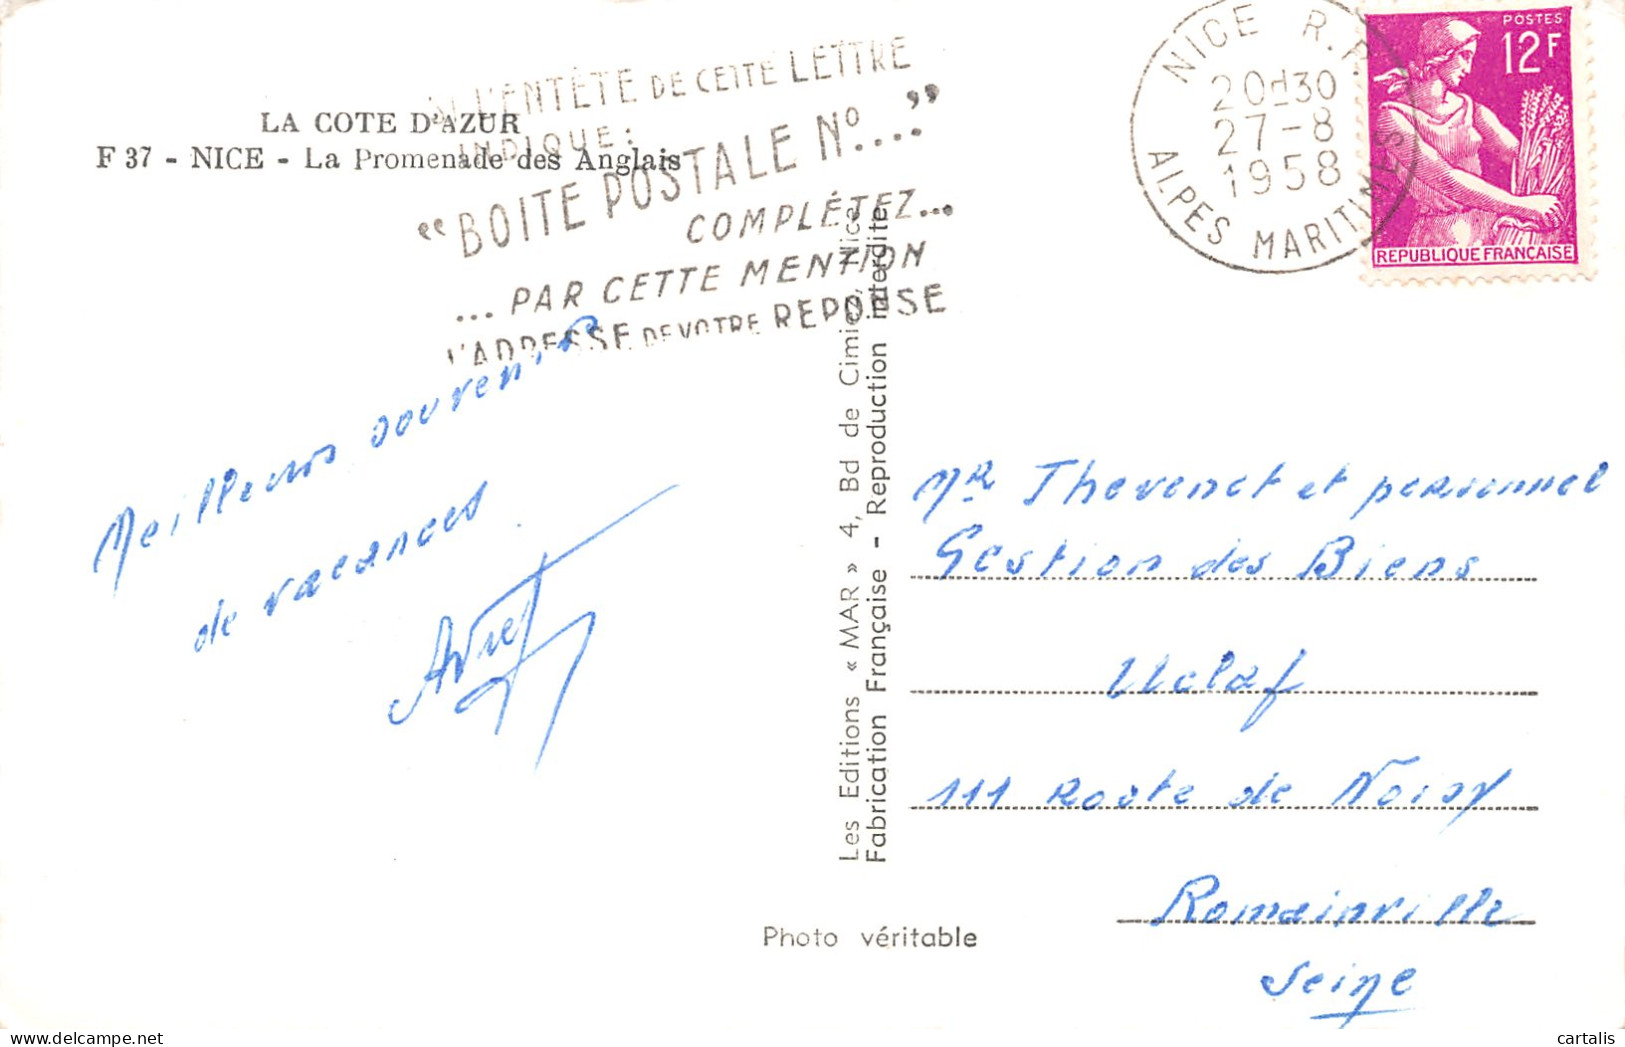 LA COTE D'AZUR
F 37 - NICE - La Promenade des Anglais
SI L'ENTÊTE DE CETTE LETTRE
INDIQUE:
“BOITE POSTALE Nº...”
COMPLÉTEZ...
...PAR CETTE MENTION
L'ADRESSE DE VOTRE REPONSE
NICE R.P.
20H30
27-8
1958
ALPES MARITIMES
POSTES
12F
REPUBLIQUE FRANÇAISE
Meilleurs souvenirs
de vacances.
Les Editions « MAR » 4, Bd de Cimiez, Nice
Fabrication Française - Reproduction interdite
Mr Thevenet et personnel
Gestion des Biens
Uclaf
111 Route de Noisy
Romainville
Seine
Photo véritable
cartalis